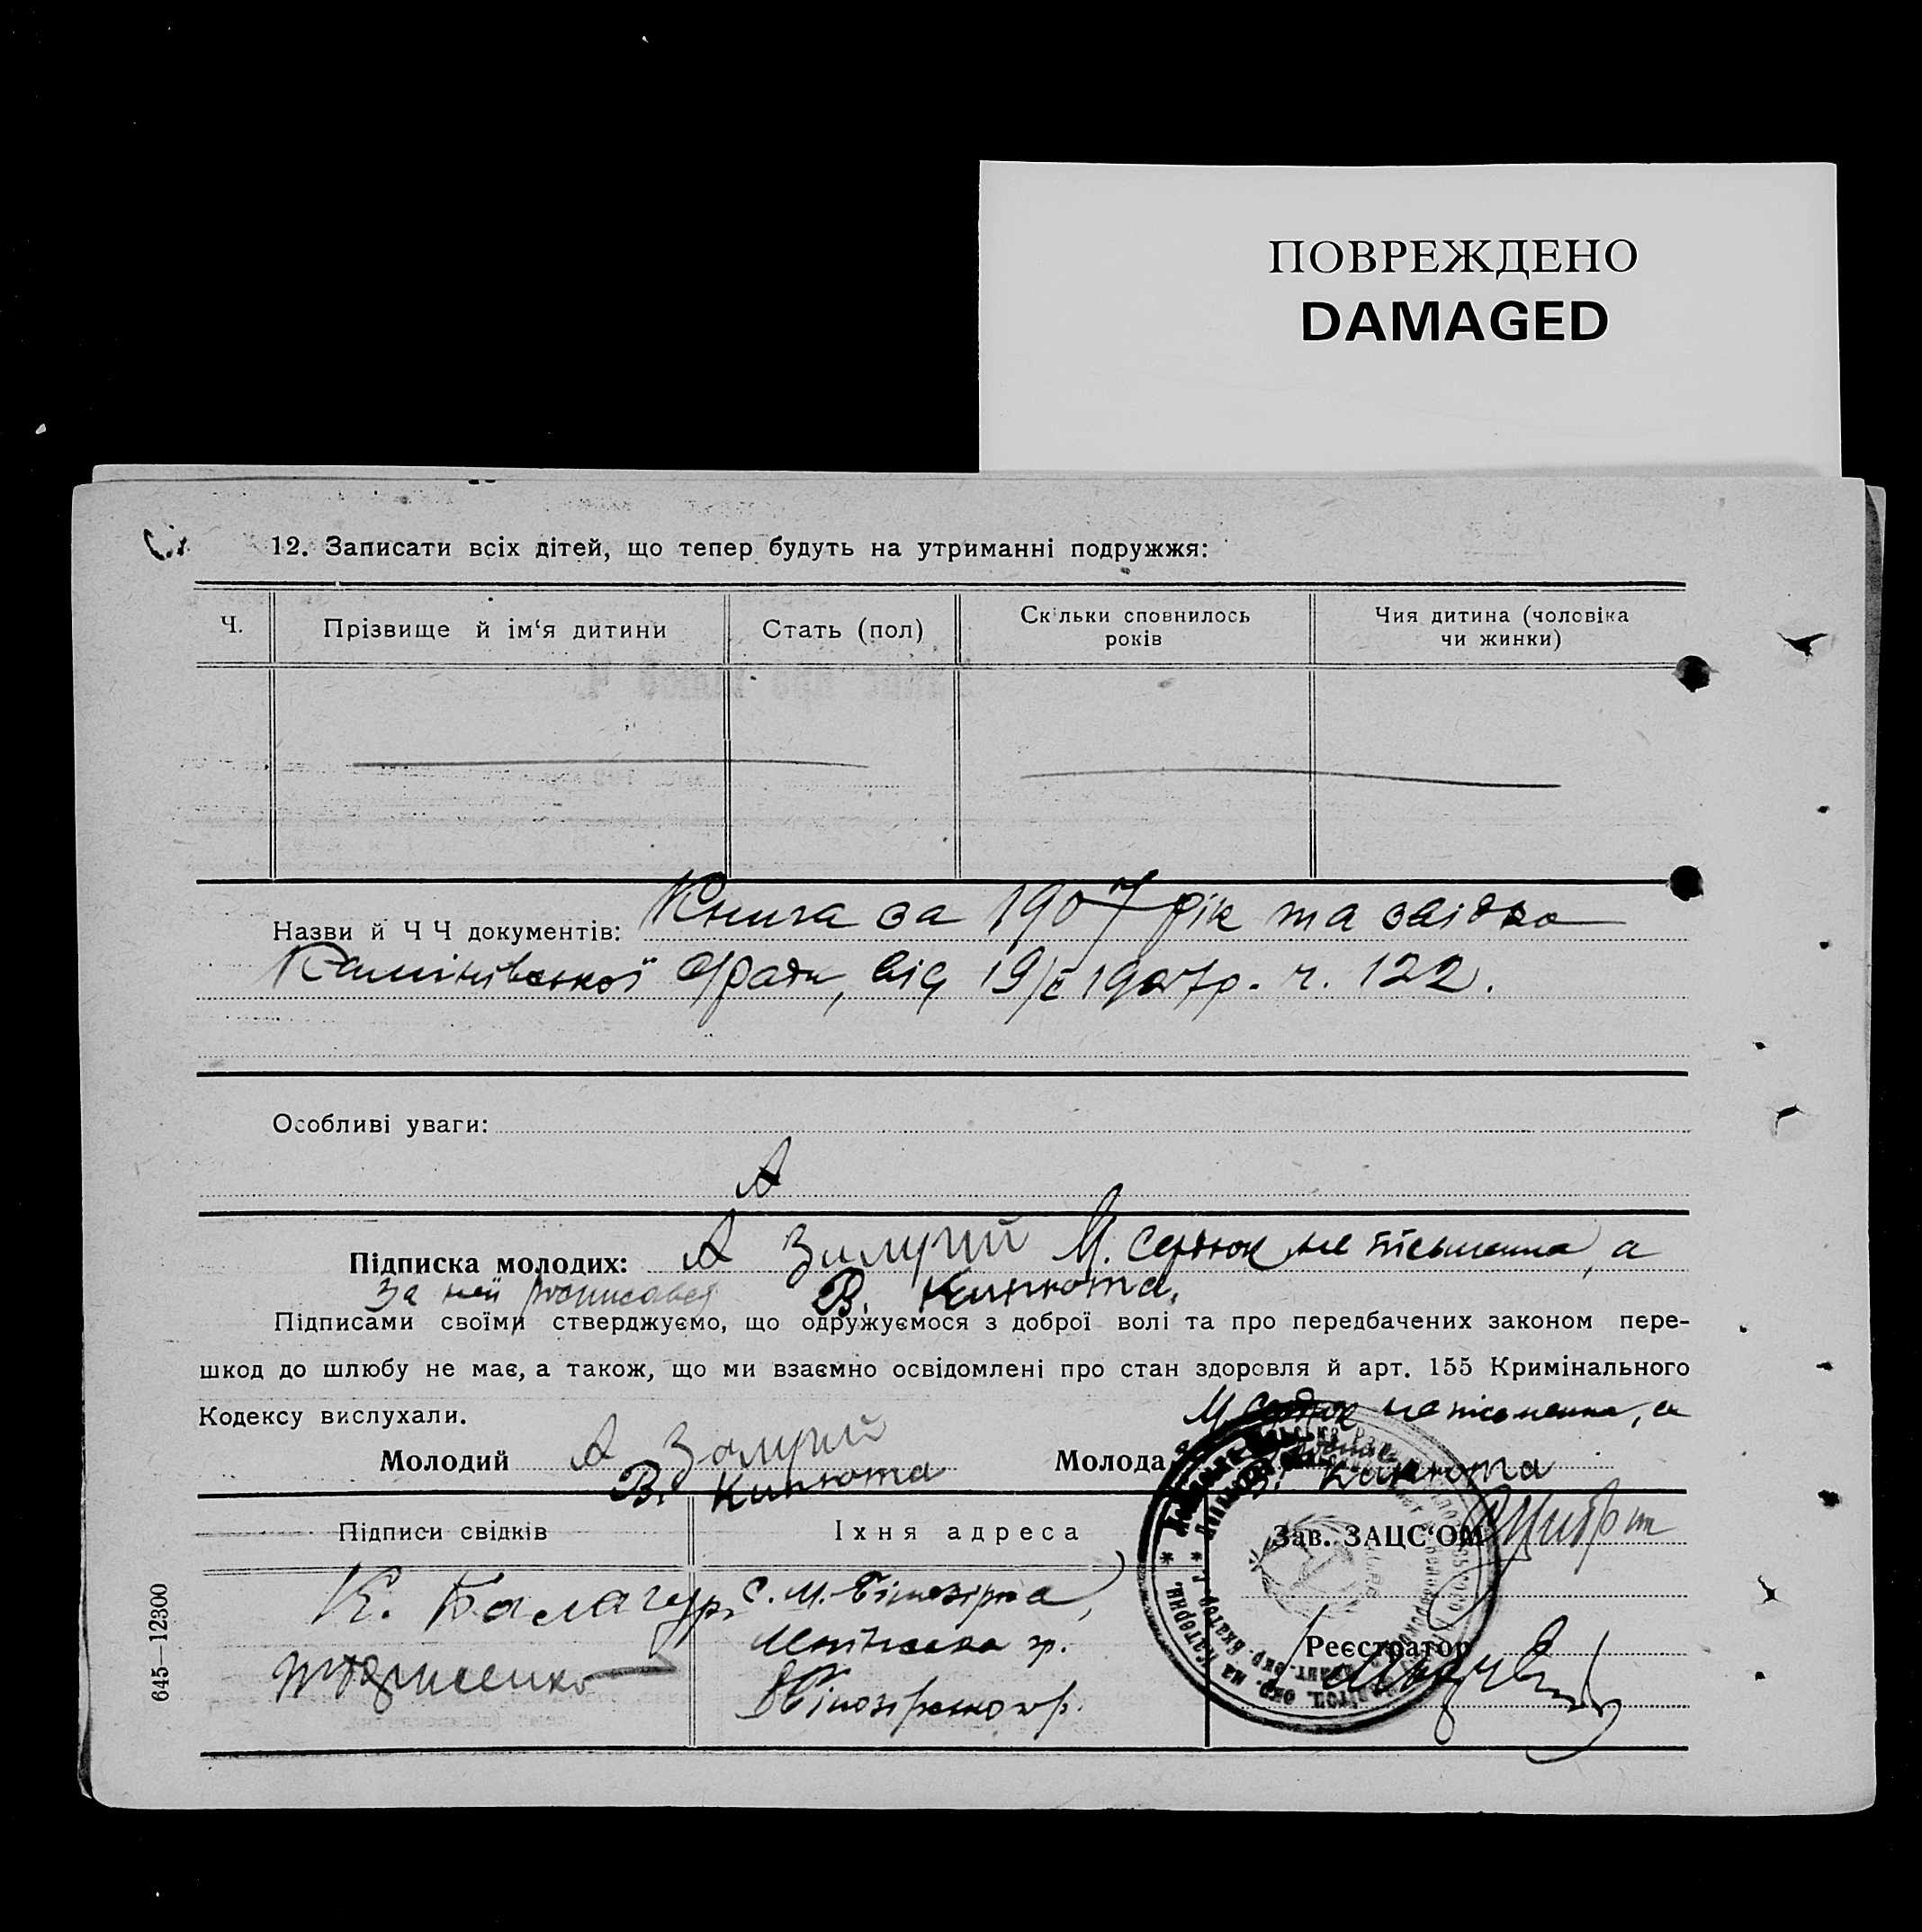 ПОВРЕЖДЕНО
DAMAGED
12. Записати всіх дітей, що тепер будуть на утриманні подружжя:
Ч.
Прізвище й ім‘я дитини
Стать (пол)
Скільки сповнилось
років
Чия дитина (чоловіка
чи жинки)
Назви й Ч Ч документів: Книга за 1907 рік та звідка
сради, від 19/І 1907р. ч. 122.
Особливі уваги:
А
Підписка молодих: А М. Сердюк не письменна, а
за неї росписався В. Кипкота.
Підписами своїми стверджуємо, що одружуємося з доброї волі та про передбачених законом пере-
шкод до шлюбу не має, а також, що ми взаємно освідомлені про стан здоровля й арт. 155 Кримінального
Кодексу вислухали.
М. Сердюк не письменна, а
Молодий А
Молода
В. Кипкота
В. Кипкота
Підписи свідків
Їхня адреса
Зав. ЗАЦС‘ОМ
К. Балагур
с. М.-Білозірка,
Реєстратор
645—12300